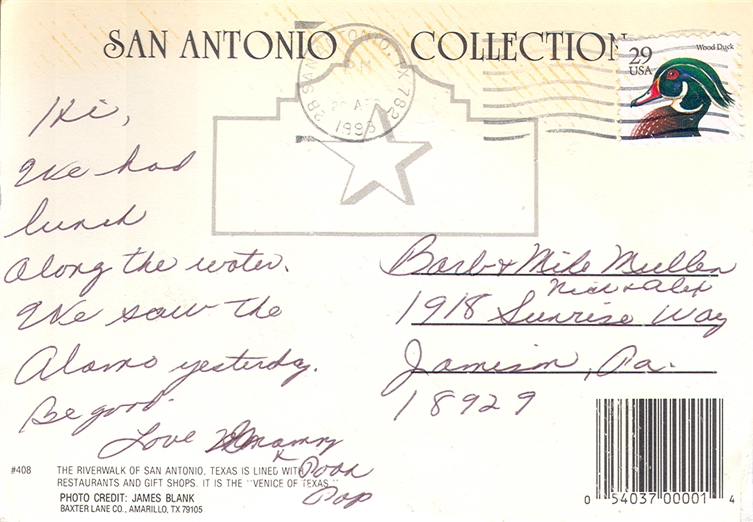 SAN ANTONIO COLLECTION
29
USA
Wood Duck
SAN ANTONIO, TX 782
PM
1993
Hi,
We had
lunch
along the water.
We saw the
Alamo yesterday.
Be good.
Love Mammy
+ Poor
Pop
Barb + Mike Mullen
Nick + Alex
1918 Sunrise Way
Jamison, Pa.
18929
#408
THE RIVERWALK OF SAN ANTONIO, TEXAS IS LINED WITH
RESTAURANTS AND GIFT SHOPS. IT IS THE "VENICE OF TEXAS."
PHOTO CREDIT: JAMES BLANK
BAXTER LANE CO., AMARILLO, TX 79105
0 54037 00001 4